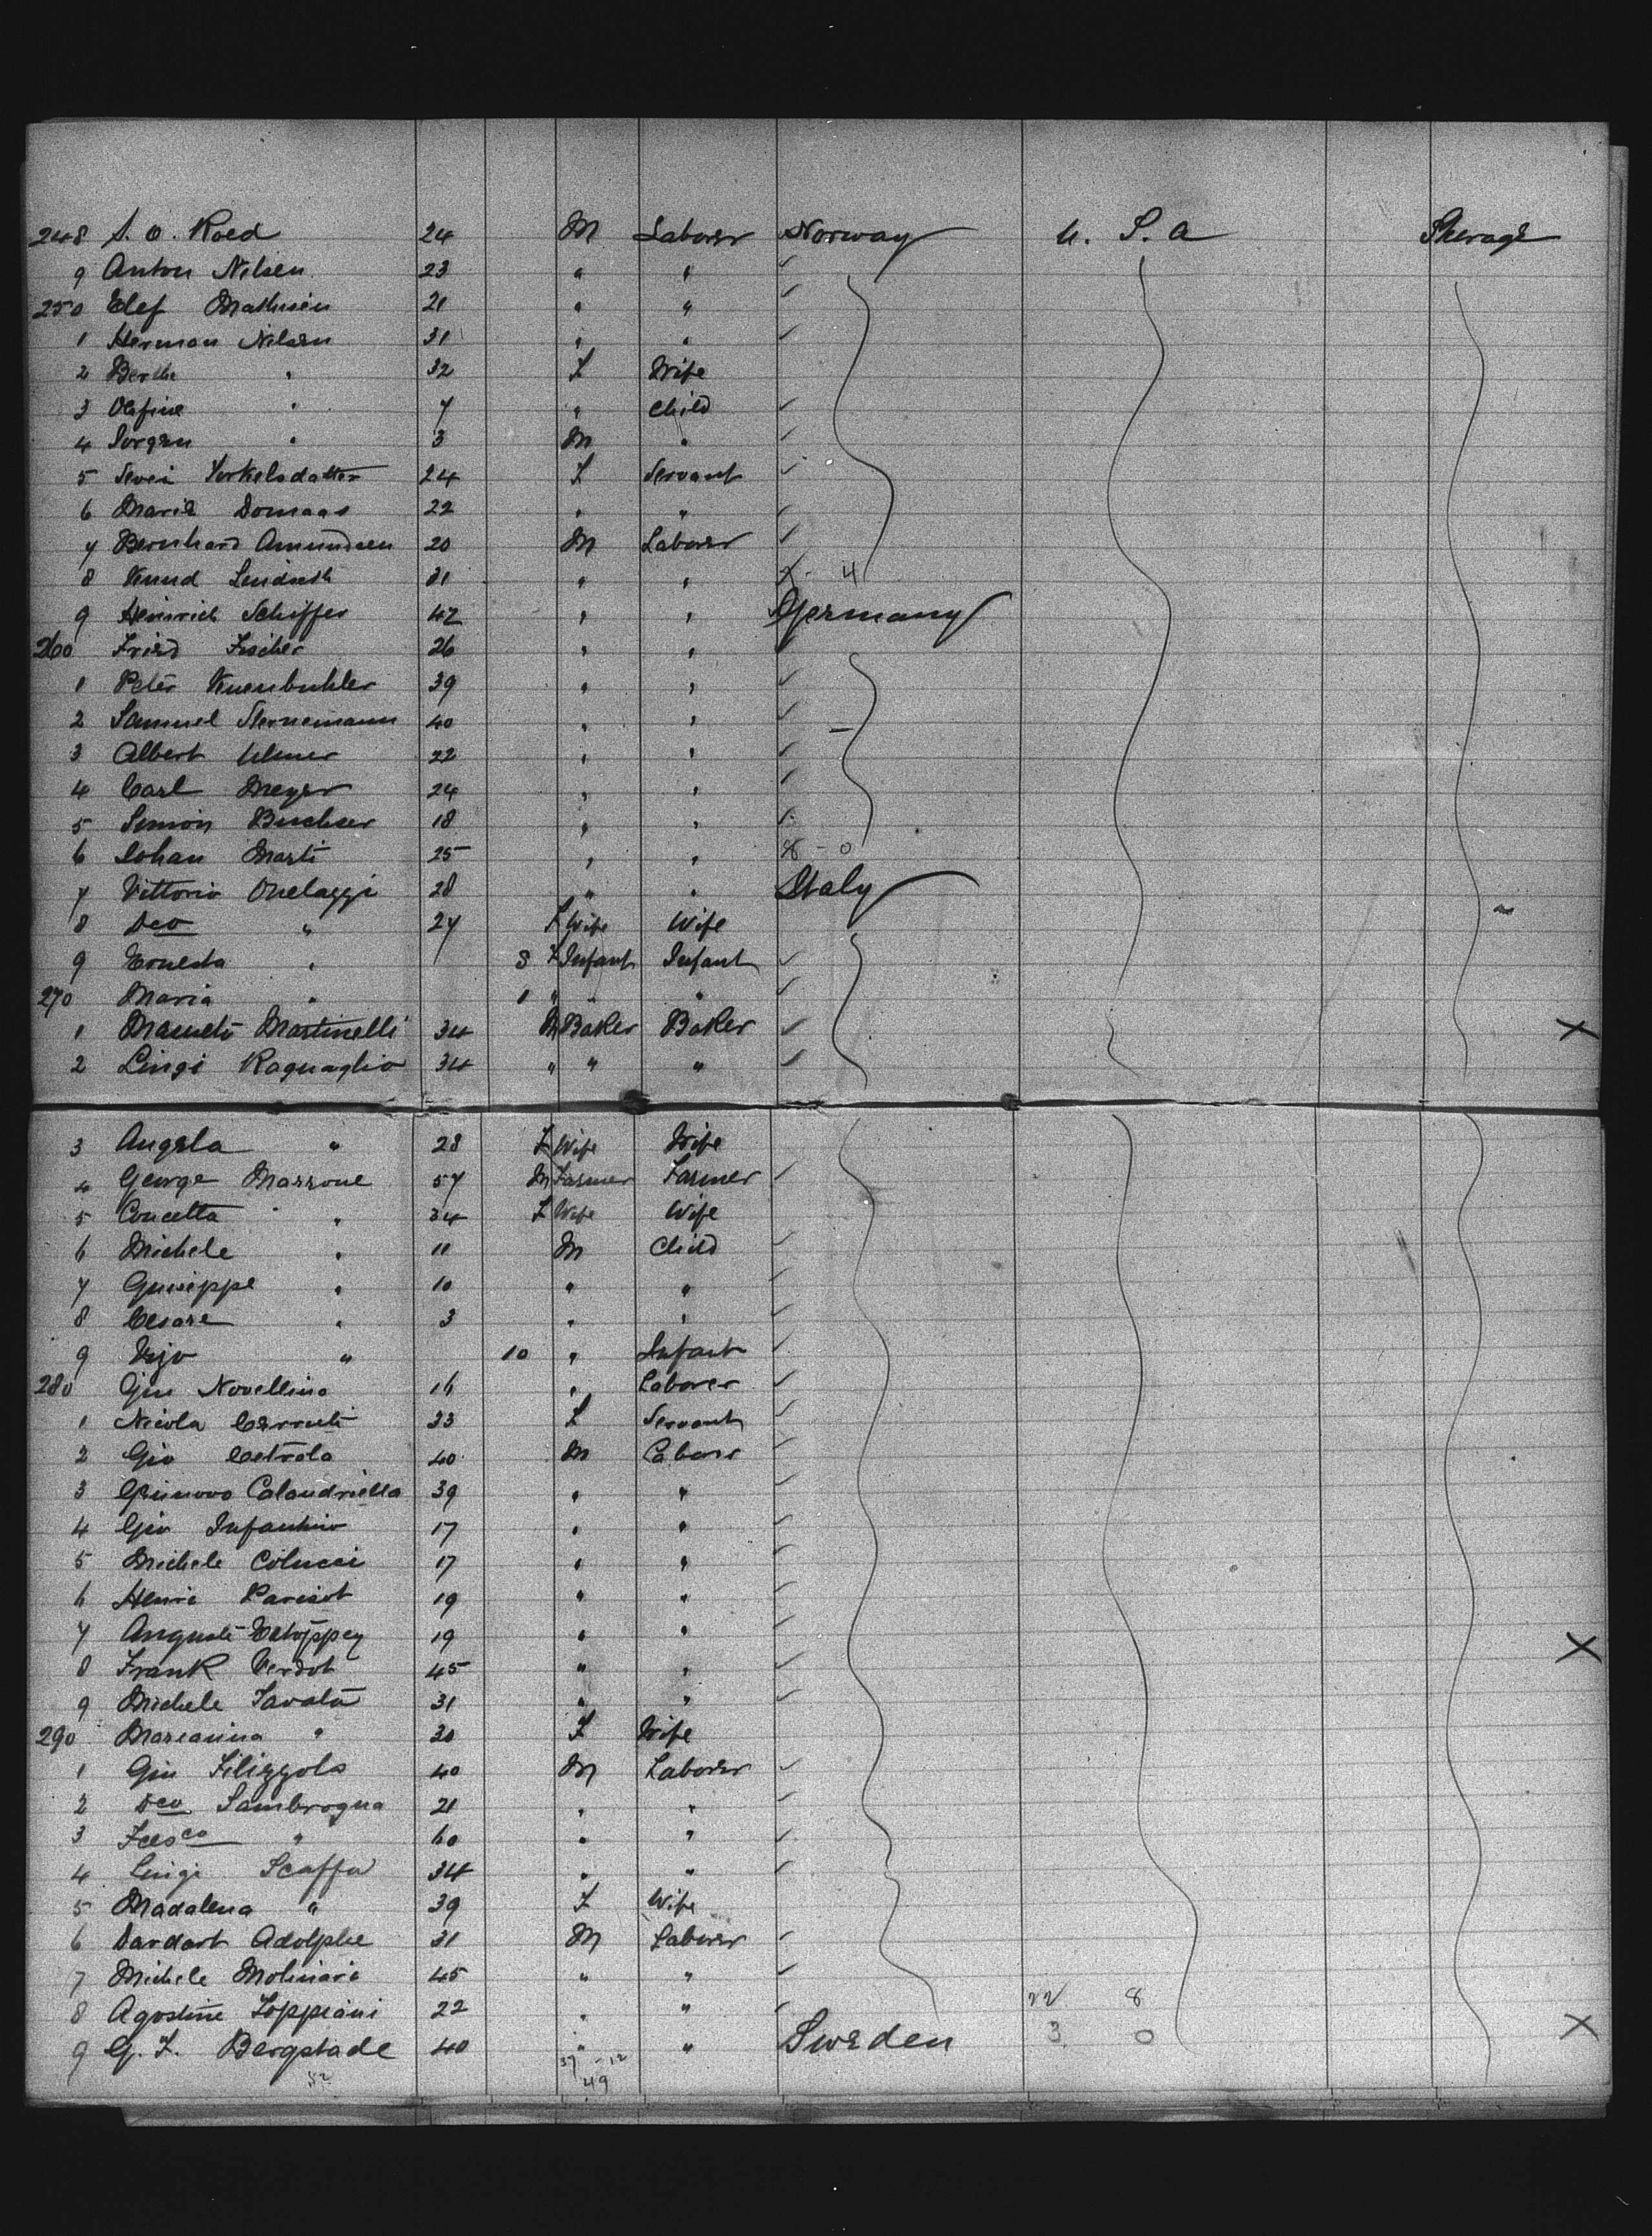 248 S. O. Roed 24 M Laborer Norway U. S. A Steerage
9 Anton Nilsen 23 " "
250 Elef Mathisen 21 " "
1 Herman Nilsen 31 " "
2 Berthe " 32 F Wife
3 Olefine " 7 " Child
4 Jorgen " 3 M "
5 Sevei Torkelsdatter 24 F Servant
6 Marie Domaas 22 " "
7 Bernhard Amundsen 20 M Laborer
8 Knud 31 " " 7 - 4
9 Heinrich Schiffer 42 " " Germany
260 Fried Fischer 26 " "
1 Peter Kuenbuhler 39 " "
2 Samuel Sternemann 40 " "
3 Albert Ulmer 22 " "
4 Carl Meyer 24 " "
5 Simon Buchser 18 " "
6 Johan Marti 25 " " 8 - 0
7 Vittorio Onelaggi 28 " " Italy
8 Dco " 27 F Wife Wife
9 Ernesta " 8 F Infant Infant
270 Maria " 1 " " "
1 Martinelli 34 M Baker Baker X
2 Luigi Raguaglio 34 " " "
3 Angela " 28 F Wife Wife
4 George Marrone 57 M Farmer Farmer
5 Concetta " 34 F Wife Wife
6 Michele " 11 M Child
7 Guiseppe " 10 " "
8 Cesare " 3 " "
9 " 10 " Infant
280 Giu Novellino 16 " Laborer
1 Nicola Cerruti 33 F Servant
2 Gio Cetrola 40 M Laborer
3 Calandriella 39 " "
4 Gio Infantino 17 " "
5 Michele Colucci 17 " "
6 Henri Parisot 19 " "
7 Auguste Estoppey 19 " " X
8 Frank Verdot 45 " "
9 Michele Favata 31 " "
290 Mareanina " 30 F Wife
1 Giu Filizzola 40 M Laborer
2 Dco Sambrogna 21 " "
3 " 60 " "
4 Luigi Scaffa 34 " "
5 Madalena " 39 F Wife
6 Dardart Adolphe 31 M Laborer
7 Michele Molinari 45 " "
8 Agostine Zoppiani 22 " " 22 8
9 G. F. Bergstade 40 " " Sweden 3 0 X
52 37 - 12
49